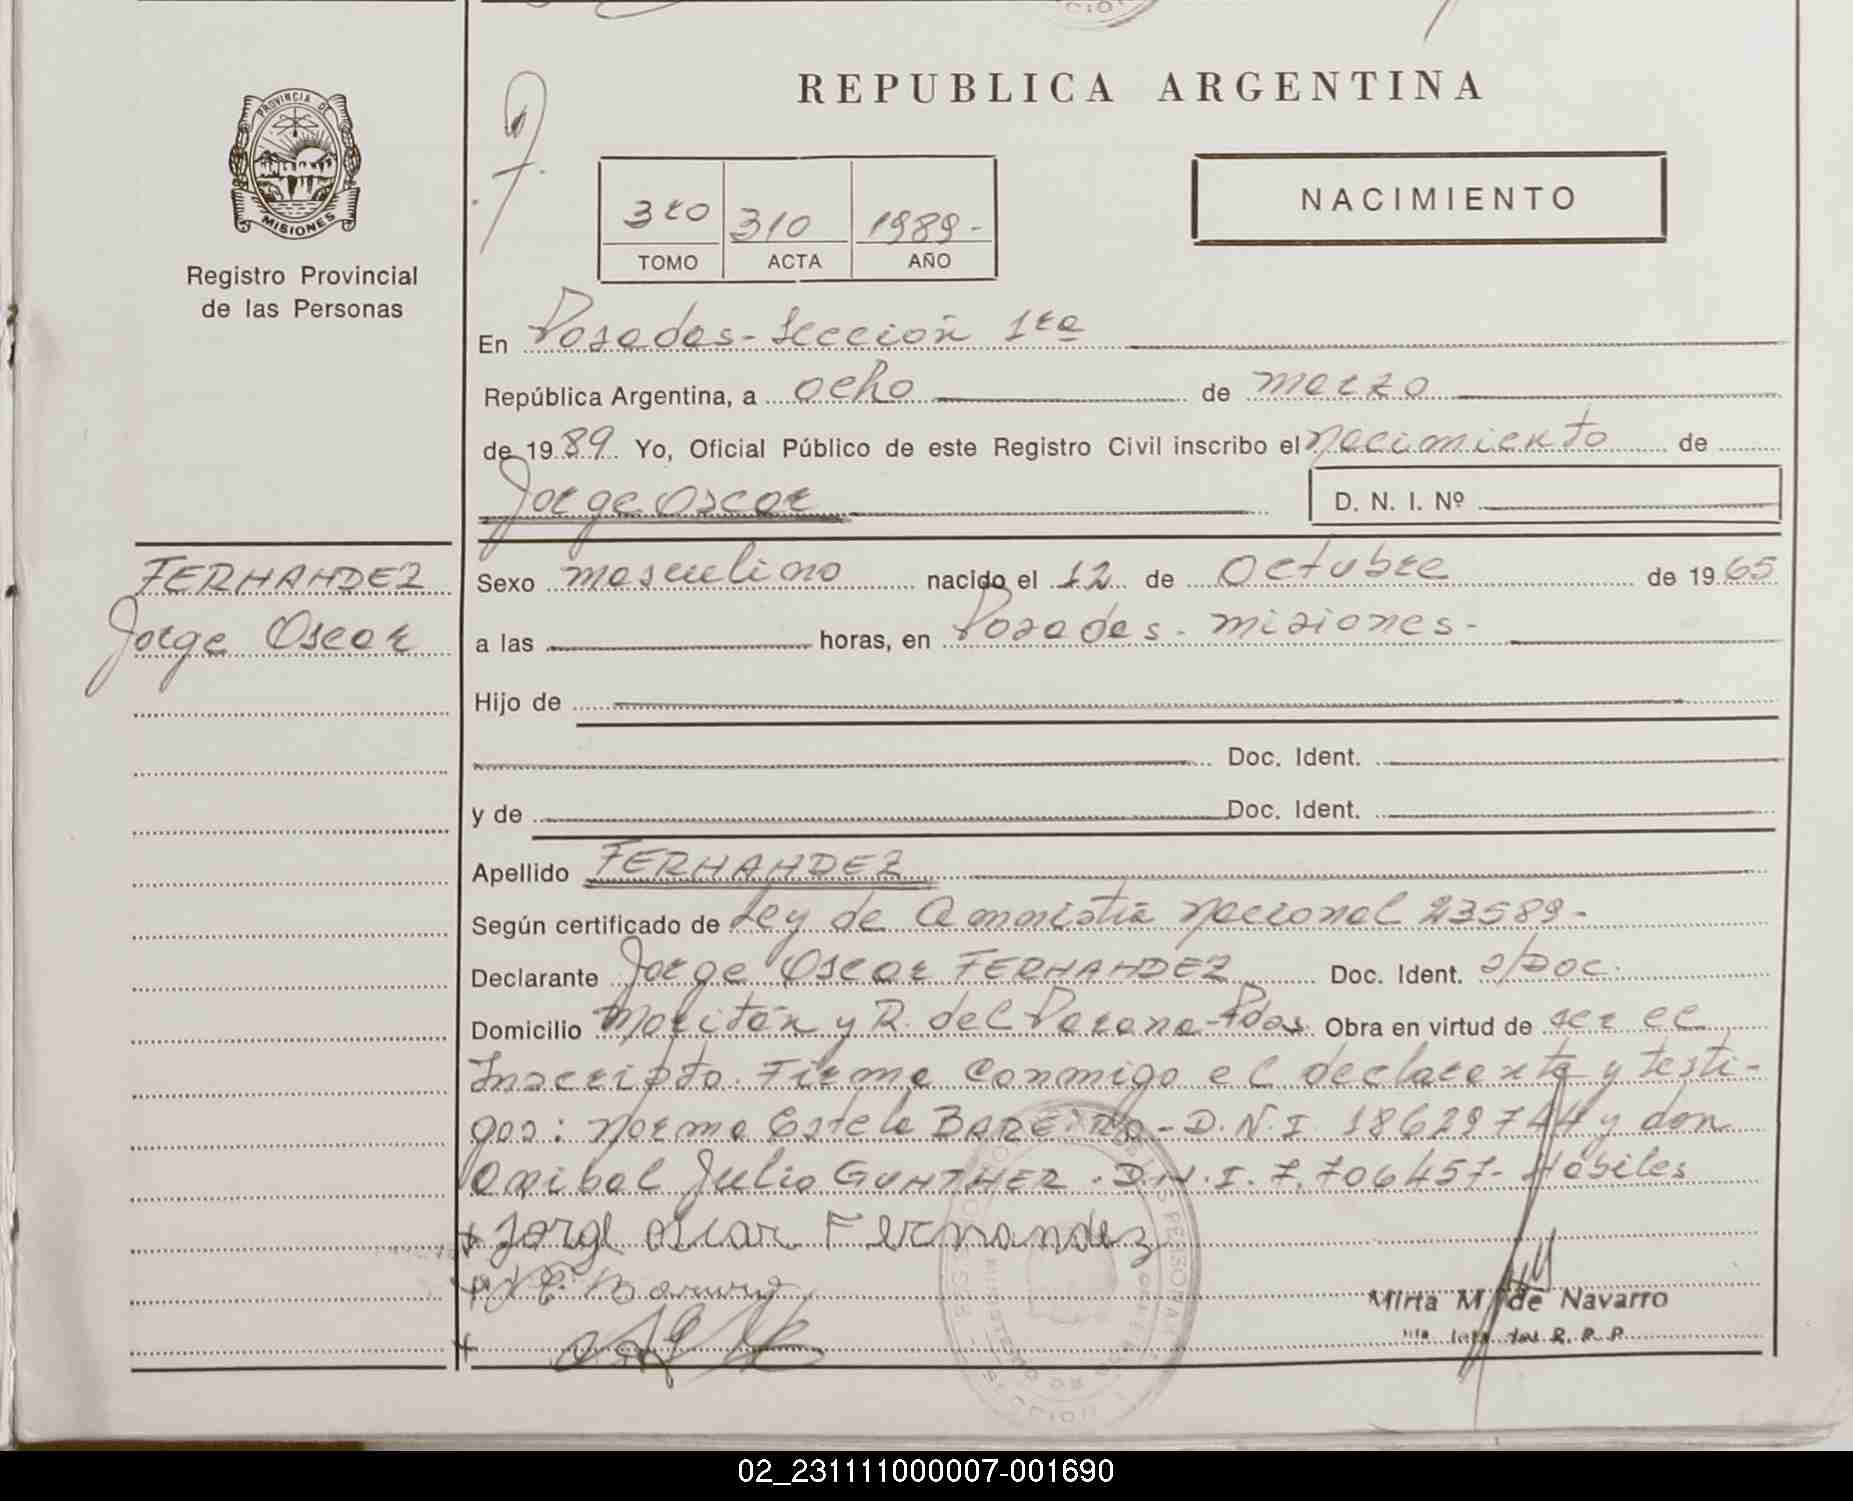 REPUBLICA ARGENTINA
PROVINCIA DE
MISIONES
Registro Provincial
de las Personas
3ro 310 1989-
TOMO ACTA AÑO
NACIMIENTO
En Posadas-Sección 1ra
República Argentina, a ocho de marzo
de 1989 Yo, Oficial Público de este Registro Civil inscribo el nacimiento de
Jorge Oscar D. N. I. Nº
FERNANDEZ
Jorge Oscar
Sexo masculino nacido el 12 de Octubre de 1965
a las horas, en Posadas - misiones-
Hijo de
Doc. Ident.
y de Doc. Ident.
Apellido FERNANDEZ
Según certificado de Ley de Amnistía Nacional 23589-
Declarante Jorge Oscar FERNANDEZ Doc. Ident. s/Doc.
Domicilio y R. del Parana-Pdas. Obra en virtud de ser el
Inscripto. Firma conmigo el declarante y testi-
gos: Norma Estela BAREIRO-D.N.I. 18629744 y don
Anibal Julio GUNTHER. D.N.I. 7.706457- Hábiles
Jorge oscar Fernandez
Mirta M. de Navarro
R. P. P.
02_231111000007-001690